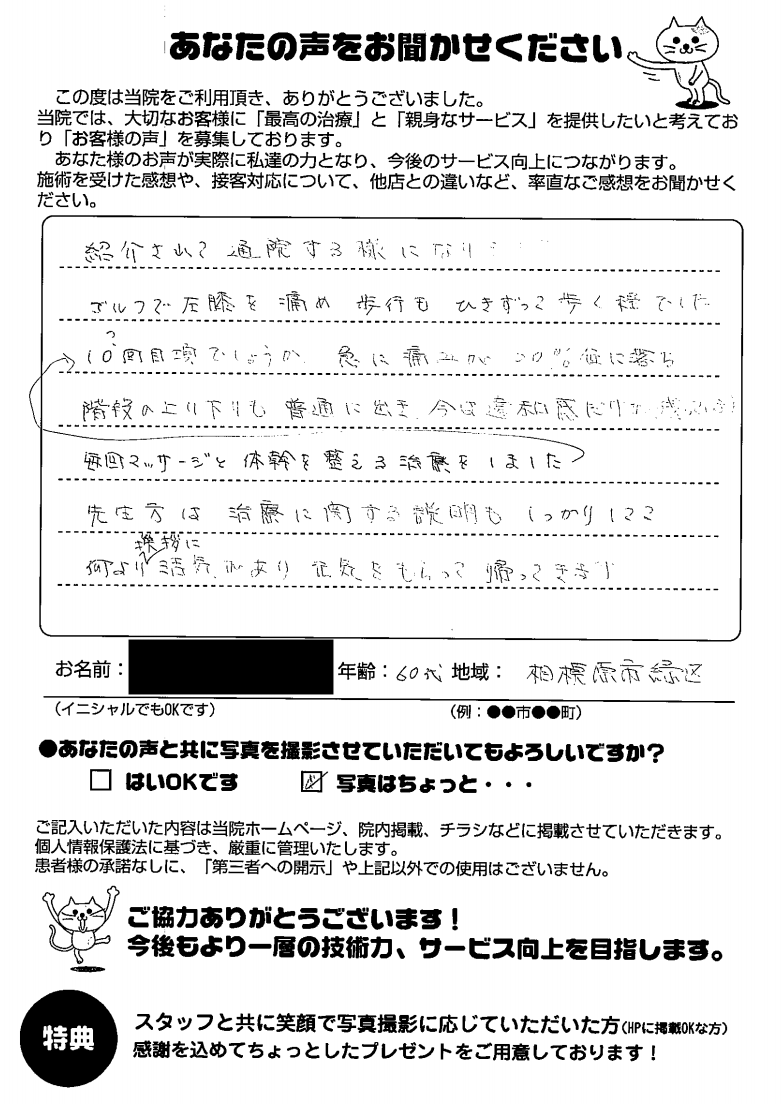 あなたの声をお聞かせください
この度は当院をご利用頂き、ありがとうございました。
当院では、大切なお客様に「最高の治療」と「親身なサービス」を提供したいと考えてお
り「お客様の声」を募集しております。
あなた様のお声が実際に私達の力となり、今後のサービス向上につながります。
施術を受けた感想や、接客対応について、他店との違いなど、率直なご感想をお聞かせく
ださい。
紹介されて通院する様になり
ゴルフで左膝を痛め 歩行も ひきずって歩く程でした
?
10回目頃でしょうか、急に痛みが 20%位に落ち
階段の上り下りも 普通に出き 今は違和感だけが
毎回マッサージと体幹を整える治療をしました
先生方は 治療に関する説明も しっかりしてて
挨拶に
何より活気があり 元気をもらって 帰ってきます
お名前: 年齢:60代 地域: 相模原市緑区
(イニシャルでもOKです) (例:●●市●●町)
●あなたの声と共に写真を撮影させていただいてもよろしいですか?
□ はいOKです ☑ 写真はちょっと・・・
ご記入いただいた内容は当院ホームページ、院内掲載、チラシなどに掲載させていただきます。
個人情報保護法に基づき、厳重に管理いたします。
患者様の承諾なしに、「第三者への開示」や上記以外での使用はございません。
ご協力ありがとうございます!
今後もより一層の技術力、サービス向上を目指します。
特典
スタッフと共に笑顔で写真撮影に応じていただいた方(HPに掲載OKな方)
感謝を込めてちょっとしたプレゼントをご用意しております!